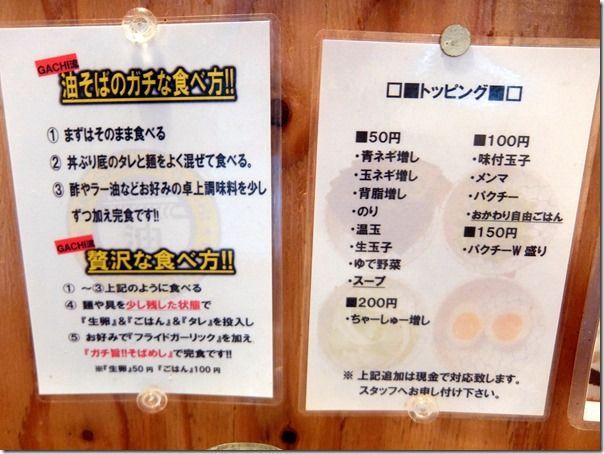 GACHI流
油そばのガチな食べ方!!
① まずはそのまま食べる
② 丼ぶり底のタレと麺をよく混ぜて食べる。
③ 酢やラー油などお好みの卓上調味料を少し
ずつ加え完食です!!
GACHI流
贅沢な食べ方!!
① ～③上記のように食べる
④ 麺や具を少し残した状態で
『生卵』&『ごはん』&『タレ』を投入し
⑤ お好みで『フライドガーリック』を加え
『ガチ旨!!そばめし』で完食です!!
※『生卵』50円 『ごはん』100円
□■トッピング■□
■50円
・青ネギ増し
・玉ネギ増し
・背脂増し
・のり
・温玉
・生玉子
・ゆで野菜
・スープ
■200円
・ちゃーしゅー増し
■100円
・味付玉子
・メンマ
・パクチー
・おかわり自由ごはん
■150円
・パクチーW盛り
※ 上記追加は現金で対応致します。
スタッフへお申し付け下さい。